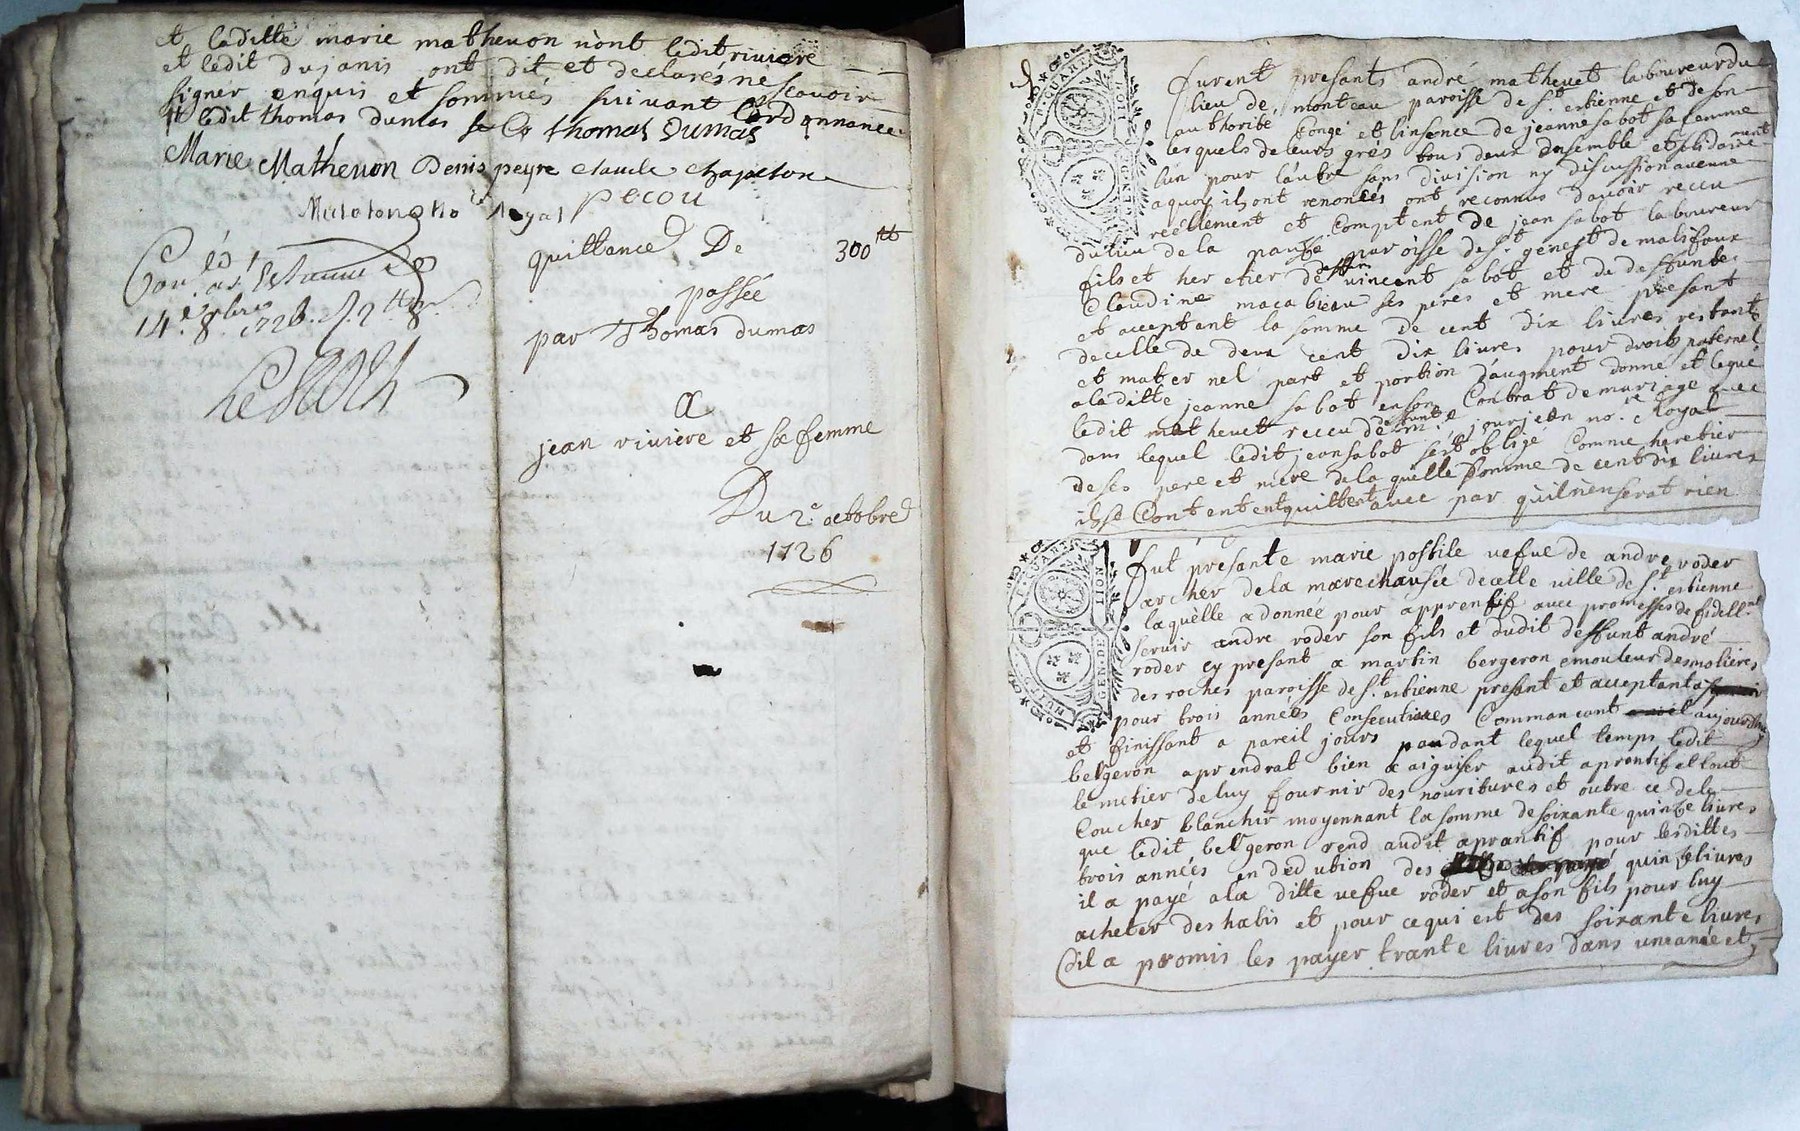 et laditte marie mathevon n'ont ledit riviere
et ledit dujanis ont dit et declarés ne scavoir
signer enquis et sommés suivant l'ordonnance
et ledit thomas dumas thomas Dumas
Marie Mathevon Denis peyre claude chapelon
pecou
royal
14e 8bre 1726
quittance De 300tt
passée
par Thomas dumas
a
jean riviere et sa femme
Du 2e octobre
1726
furent presants andré mathevet laboureur du
lieu de monteau paroisse de st estienne et de son
authorité congé et linsence de jeanne sabot sa femme
lesquels de leurs grés tous deux ensemble et solidairement
l'un pour l'autre sans division ny discussion
a quoy ils ont renoncés ont reconnus d'avoir receu
reéllement et comptent de jean sabot laboureur
du lieu de la paroisse de st genest de malifaux
fils et heretier de deffunt vincent sabot et de deffunte
Claudine macabieau ses peres et mere presant
et acceptant la somme de cent dix livres restants
de celle de deux cent dix livres pour droits paternel
et maternel part et portion d'augment donné et legué
a laditte jeanne sabot en son Contrat de mariage avec
ledit mathevet receu de deffunt me jourjeon no.re Royal
dans lequel ledit jean sabot s'est obligé Comme heretier
de ses pere et mere de la quelle somme de cent dix livres
ils se Contentent quittent avec par qu'il n'en serat rien
fut presante marie possile vefue de andre roder
archer de la marechausée de cette ville de st estienne
laquélle a donnee pour apprentif avec promesses de fidellement
servir andre roder son fils et dudit deffunt andré
roder cy presant a martin bergeron emouleur des molières
des roches paroisse de st estienne presant et acceptant
pour trois années Consecutives Commancant aujourdhuy
et finissant a pareil jours pandant lequel temps ledit
bergeron aprendrat bien a aiguiser audit aprentif et tout
le metier de luy fournir des nouritures et outre ce de le
Coucher blanchir moyennant la somme de soixante quinze livres
que ledit bergeron rend audit aprantif pour lesdittes
trois années en dedubtion des quinze livres
il a payé a la ditte vefue roder et a son fils pour luy
acheter des habis et pour ce qui est des soixante livres
dil a promis les payer trante livres dans une anée et